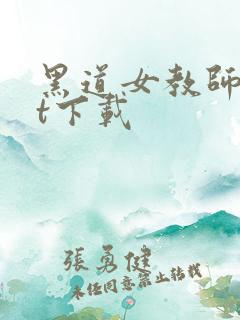 黑道女教師
t下載
張勇健
未經同意禁止轉載